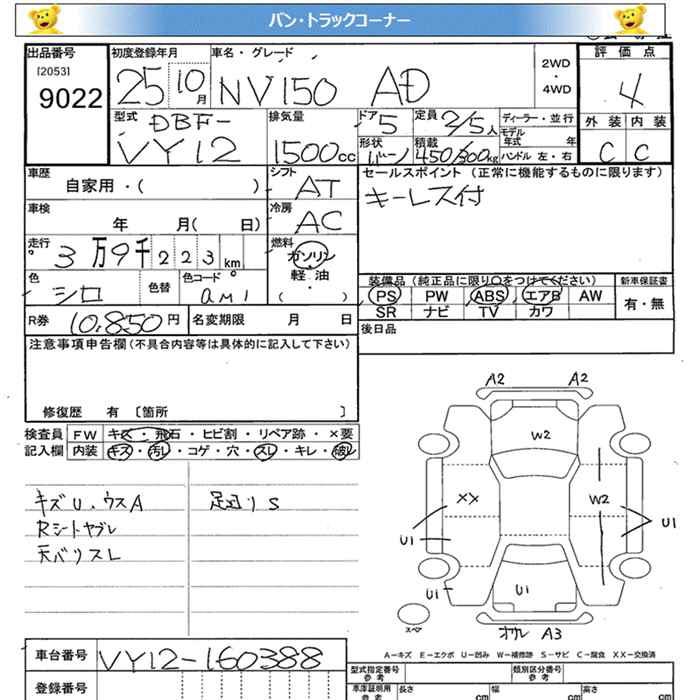 バン・トラックコーナー
出品番号 初度登録年月 車名・グレード 評価点
[2053] 9022 25 10月 NV150 AD 2WD・4WD 4
型式 DBF-VY12 排気量 1500cc ドア 5 定員 2/5人 ディーラー・並行 外装 内装
形状 バン 積載 450/300kg モデル年式 年 ハンドル 左・右 C C
車歴 自家用・( ) シフト AT セールスポイント (正常に機能するものに限ります)
車検 年 月( 日) 冷房 AC キーレス付
走行 3万9千223km 燃料 ガソリン 軽・油 ( )
色 シロ 色替 色コード am1
装備品 (純正品に限り○をつけてください) 新車保証書
PS PW ABS エアB AW 有・無
SR ナビ TV カワ
R券 10,850円 名変期限 月 日 後日品
注意事項申告欄 (不具合内容等は具体的に記入して下さい)
修復歴 有 〔箇所 〕
検査員記入欄 FW キズ・飛石・ヒビ割・リペア跡・×要
内装 キズ・汚レ・コゲ・穴・スレ・キレ・破レ
キズU.ウスA 足廻りS
Rシートヤブレ
天バリスレ
A2 A2
W2
XX W2
U1 U1
U1 U1
スペア オクレ A3
A-キズ E-エクボ U-凹み W-補修跡 S-サビ C-腐食 XX-交換済
車台番号 VY12-160388
登録番号
型式指定番号 参考 類別区分番号 参考
車庫証明用 参考 長さ cm 幅 cm 高さ cm